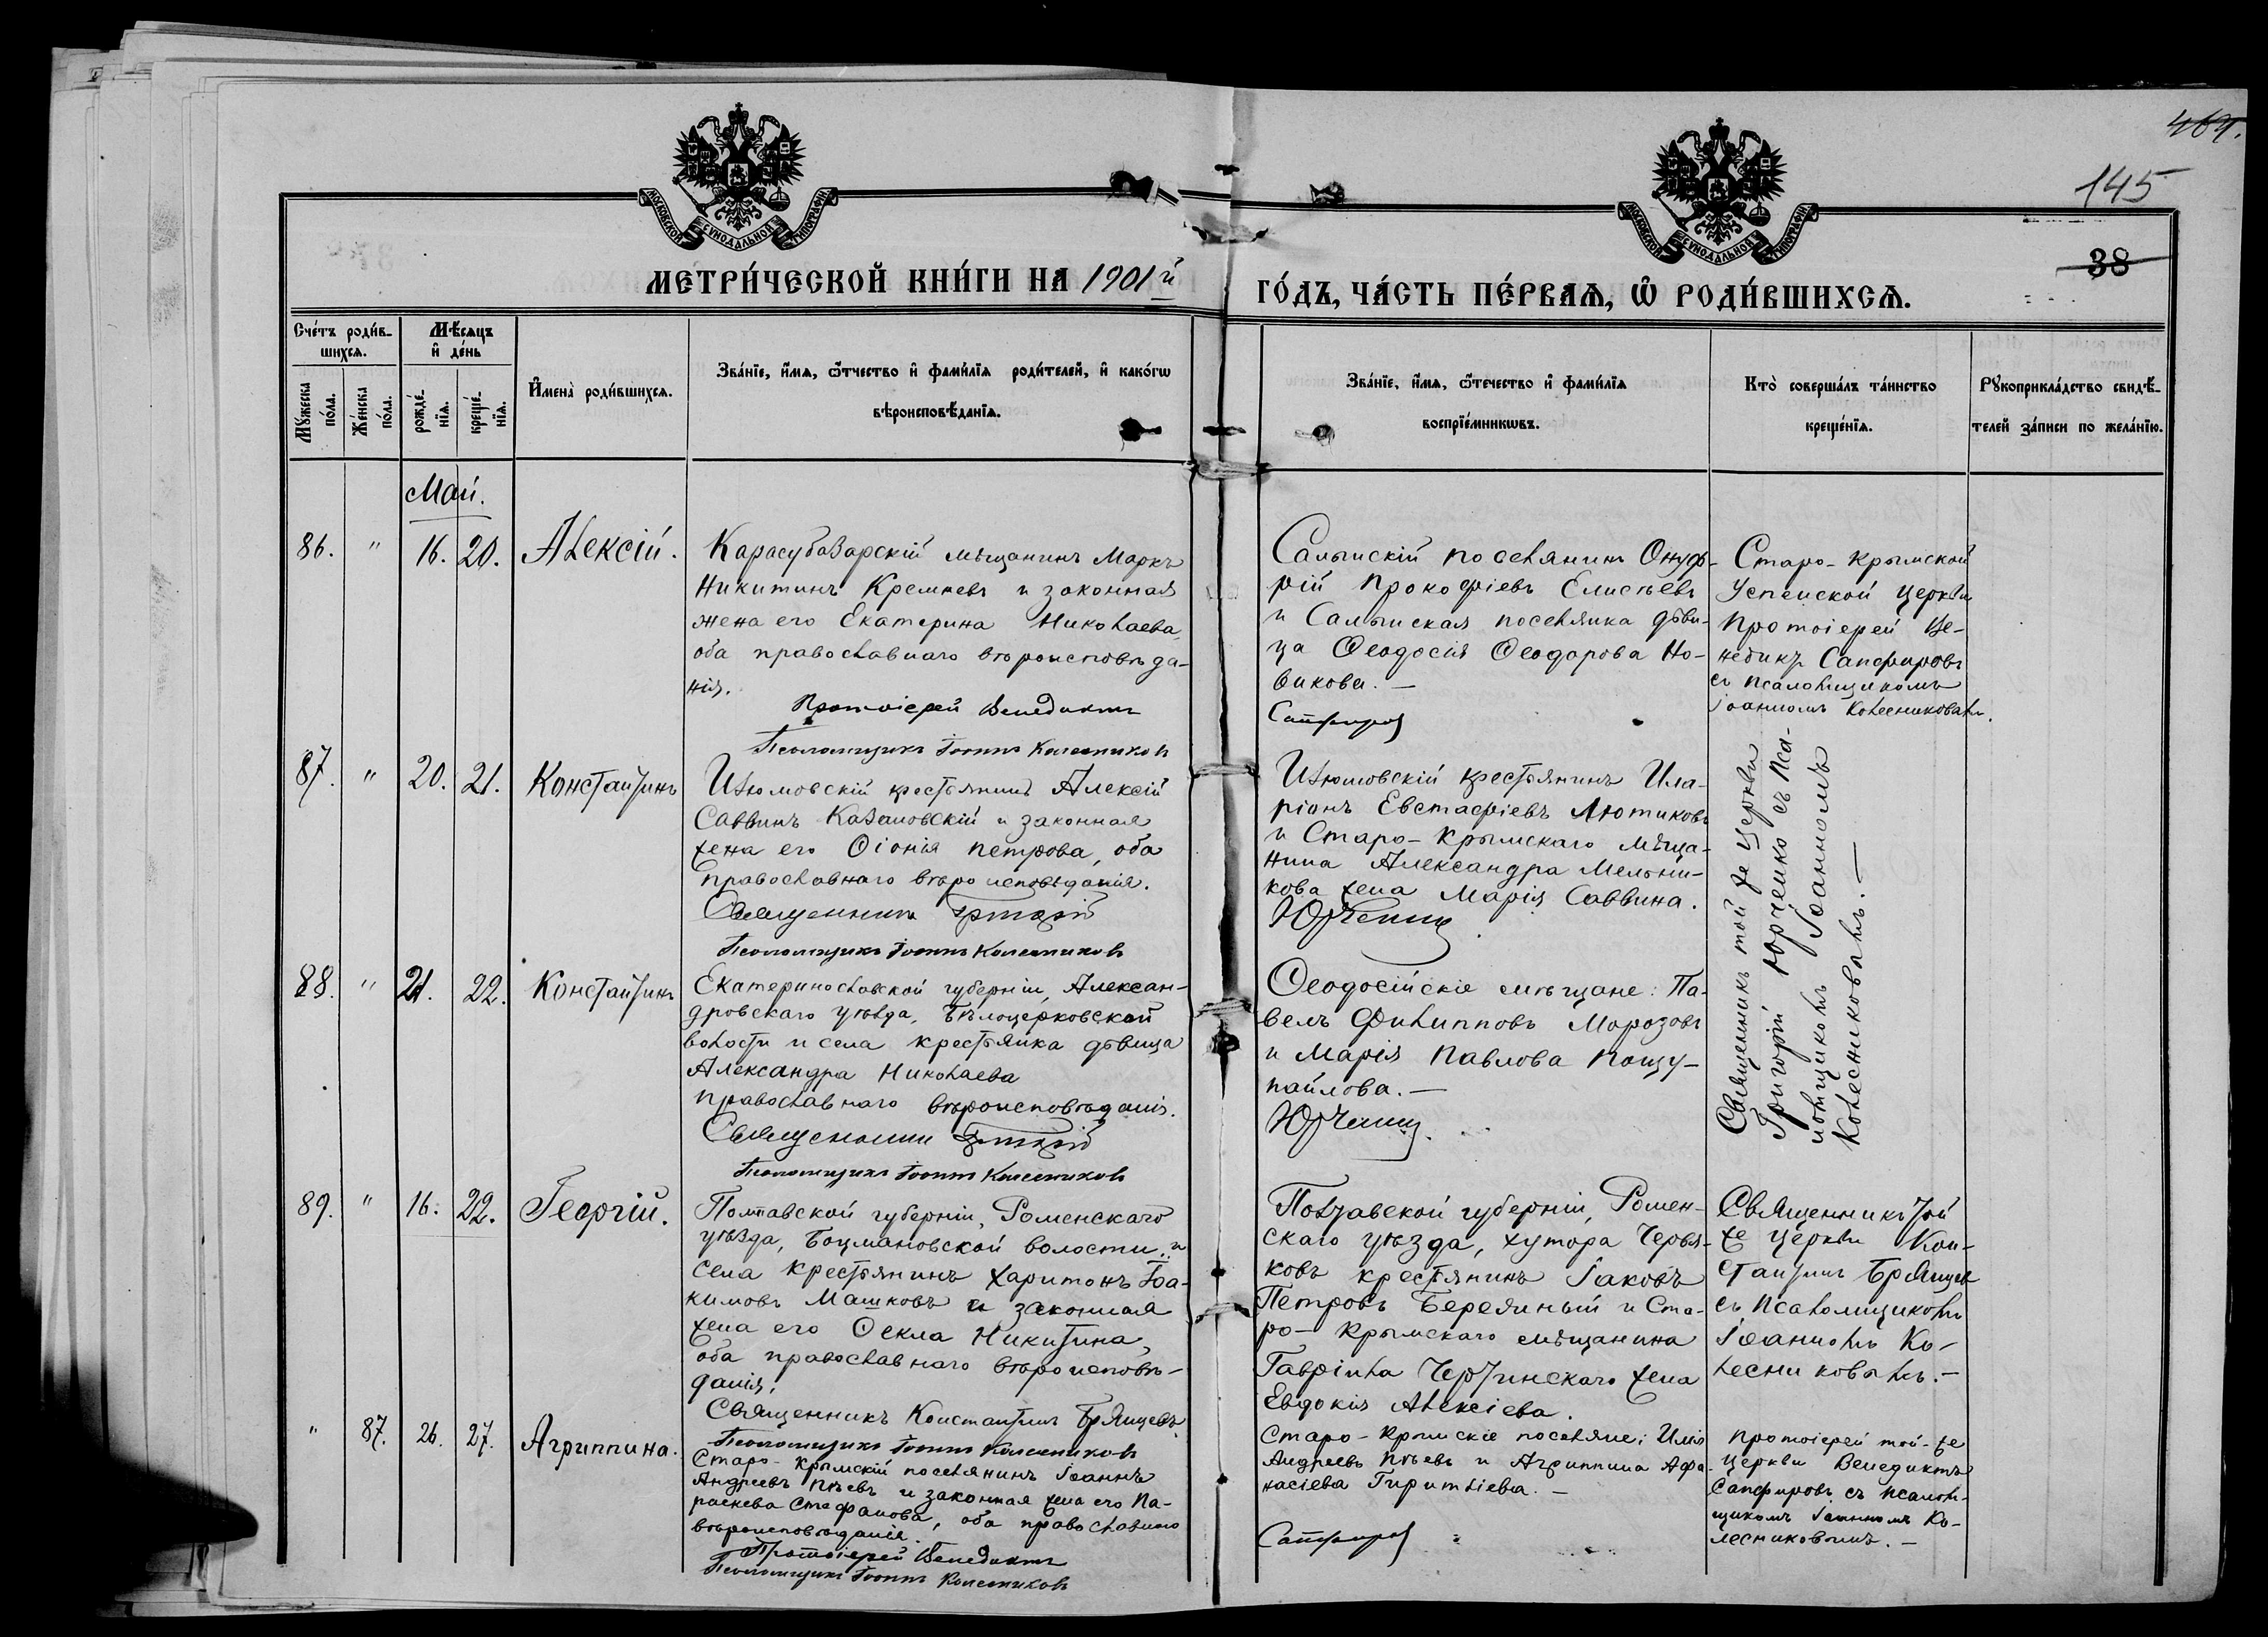 464.
145
38
МОСКОВСКОЙ СѴНОДАЛЬНОЙ ТИПОГРАФІИ
МОСКОВСКОЙ СѴНОДАЛЬНОЙ ТИПОГРАФІИ
МЕТРИ́ЧЕСКОЙ КНИ́ГИ НА 1901й
ГО́ДЪ, ЧА́СТЬ ПЕ́РВАЯ, Ѽ РОДИ́ВШИХСЯ.
Сче́тъ роди́в-
шихся.
Мꙋ́жеска
по́ла.
Же́нска
по́ла.
Мѣ́сяцъ
и҆ де́нь
рожде́-
нїя.
креще́-
нїя.
И҆мена̀ роди́вшихся.
Зва́нїе, и҆́мя, ѻ҆́тчество и҆ фами́лїя роди́телей, и҆ како́гѡ
вѣроисповѣ́данїя.
Зва́нїе, и҆́мя, ѻ҆́течество и҆ фами́лїя
воспрїе́мникѡвъ.
Кто̀ соверша́лъ та́инство
креще́нїя.
Рꙋкоприкла́дство свидѣ́-
телей за́писи по жела́нїю.
Май.
86. " 16. 20. Алексій.
Карасубазарскій мѣщанинъ Маркъ
Никитинъ Кремневъ и законная
жена его Екатерина Николаева,
оба православнаго вѣроисповѣда-
нія.
Протоіерей Венедиктъ
Псаломщикъ Іоаннъ Колесниковъ
Салынскій поселянинъ Онуф-
рій Прокофіевъ Елисѣевъ
и Салынская поселянка дѣви-
ца Ѳеодосія Ѳеодорова Но-
викова. —
Сапфировъ
Старо-Крымской
Успенской церкви
Протоіерей Ве-
недиктъ Сапфировъ
съ псаломщикомъ
Іоанномъ Колесниковымъ.
87. " 20. 21. Константинъ
Изюмовскій крестьянинъ Алексій
Саввинъ Казановскій и законная
жена его Ѳіонія Петрова, оба
православнаго вѣроисповѣданія.
Священникъ Григорій
Псаломщикъ Іоаннъ Колесниковъ
Изюмовскій крестьянинъ Ила-
ріонъ Евстафіевъ Лютиковъ
и Старо-Крымскаго мѣща-
нина Александра Мельни-
кова жена Марія Саввина.
Юрченко
Священникъ той же церкви
Григорій Юрченко съ пса-
ломщикомъ Іоанномъ
Колесниковымъ. —
88. " 21. 22. Константинъ
Екатеринославской губерніи, Алексан-
дровскаго уѣзда, Бѣлоцерковской
волости и села крестьянка дѣвица
Александра Николаева
православнаго вѣроисповѣданія.
Священникъ Григорій
Псаломщикъ Іоаннъ Колесниковъ
Ѳеодосійскіе мѣщане: Па-
велъ Филипповъ Морозовъ
и Марія Павлова Пощу-
пайлова. —
Юрченко.
89. " 16. 22. Георгій.
Полтавской губерніи, Роменскаго
уѣзда, Боцмановской волости и
села крестьянинъ Харитонъ Іоа-
кимовъ Машковъ и законная
жена его Ѳекла Никитина,
оба православнаго вѣроисповѣ-
данія.
Священникъ Константинъ Брянцевъ
Псаломщикъ Іоаннъ Колесниковъ
Полтавской губерніи, Ромен-
скаго уѣзда, хутора Червя-
ковъ крестьянинъ Іаковъ
Петровъ Береяный и Ста-
ро-Крымскаго мѣщанина
Гавріила Чертинскаго жена
Евдокія Алексіева.
Священникъ той
же церкви Кон-
стантинъ Брянцевъ
съ псаломщикомъ
Іоанномъ Ко-
лесниковымъ. —
" 87. 26. 27. Агриппина.
Старо-Крымскій поселянинъ Іоаннъ
Андреевъ Пѣевъ и законная жена его Па-
раскева Стефанова, оба православнаго
вѣроисповѣданія.
Протоіерей Венедиктъ
Псаломщикъ Іоаннъ Колесниковъ
Старо-Крымскіе поселяне: Илія
Андреевъ Пѣевъ и Агриппина Афа-
насіева
Сапфировъ
Протоіерей той-же
церкви Венедиктъ
Сапфировъ съ псалом-
щикомъ Іоанномъ Ко-
лесниковымъ. —